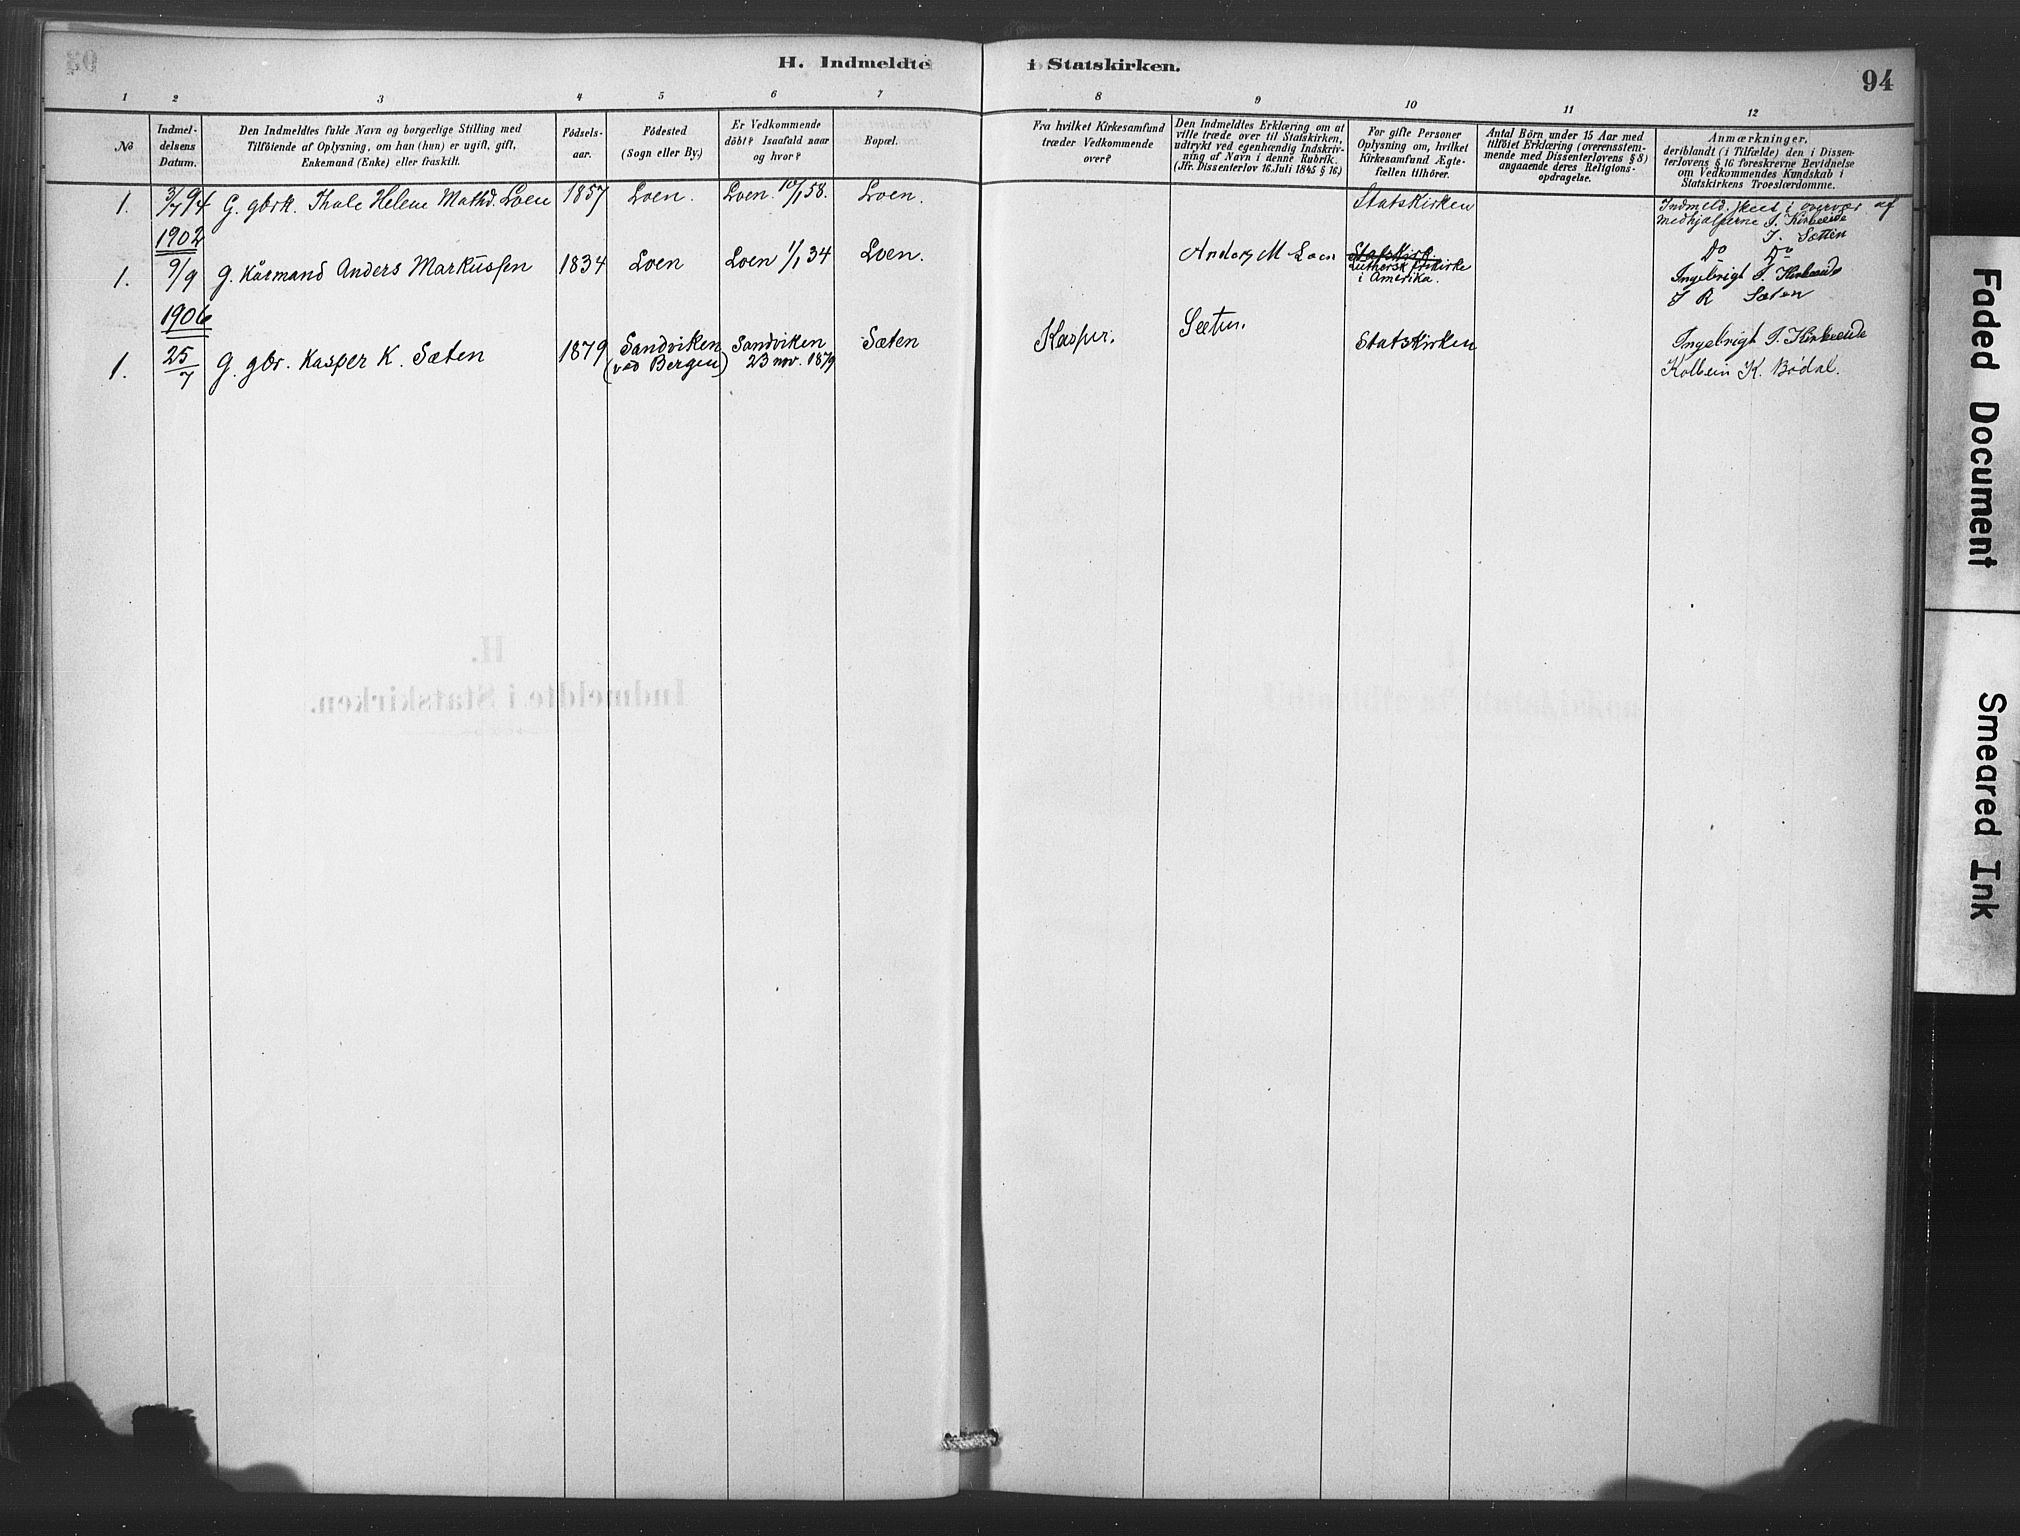 H. Indmeldte i Statskirken.
94
1 2 3 4 5 6 7 8 9 10 11 12
No
Indmel-
delsens
Datum.
Den Indmeldtes fulde Navn og borgerlige Stilling med
Tilföiende af Oplysning, om han (hun) er ugift, gift,
Enkemand (Enke) eller fraskilt.
Födsels-
aar.
Födested
(Sogn eller By.)
Er Vedkommende
döbt? Isaafald naar
og hvor?
Bopæl.
Fra hvilket Kirkesamfund
træder Vedkommende
over?
Den Indmeldtes Erklæring om at
ville træde over til Statskirken,
udtrykt ved egenhændig Indskriv-
ning af Navn i denne Rubrik.
(Jfr. Dissenterlov 16. Juli 1845 § 16.)
For gifte Personer
Oplysning om, hvilket
Kirkesamfund Ægte-
fællen tilhörer.
Antal Börn under 15 Aar med
tilföiet Erklæring (overensstem-
mende med Dissenterlovens § 8)
angaaende deres Religions-
opdragelse.
Anmærkninger,
deriblandt (i Tilfælde) den i Dissen-
terlovens § 16 foreskrevne Bevidnelse
om Vedkommendes Kundskab i
Statskirkens Troeslærdomme.
1. 3/7 94 G. gbrk. Thale Helene Mathd. Loen 1857 Loen. Loen. 10/1 58. Loen. Statskirken
Indmeld. skeet i overvær af
Medhjælperne I. Kirkeeide
J. Sætten
1902
1. 9/9 G. Kårmand Anders Markussen 1834 Loen Loen 1/1 34 Loen. Anders M Loen
Statskirk.
Luthersk frikirke
i Amerika.
Do Do
Ingebrigt I. Kirkeeide
J R Sæten
1906
1. 25/7 G. gbr. Kasper K. Sæten 1879
Sandviken
(ved Bergen)
Sandviken
23 nov. 1879
Sæten Kasper. Sæten. Statskirken
Ingebrigt I. Kirkeeide
Kolbein K. Bødal.
H.
Indmeldte i Statskirken.
Faded Document
Smeared Ink